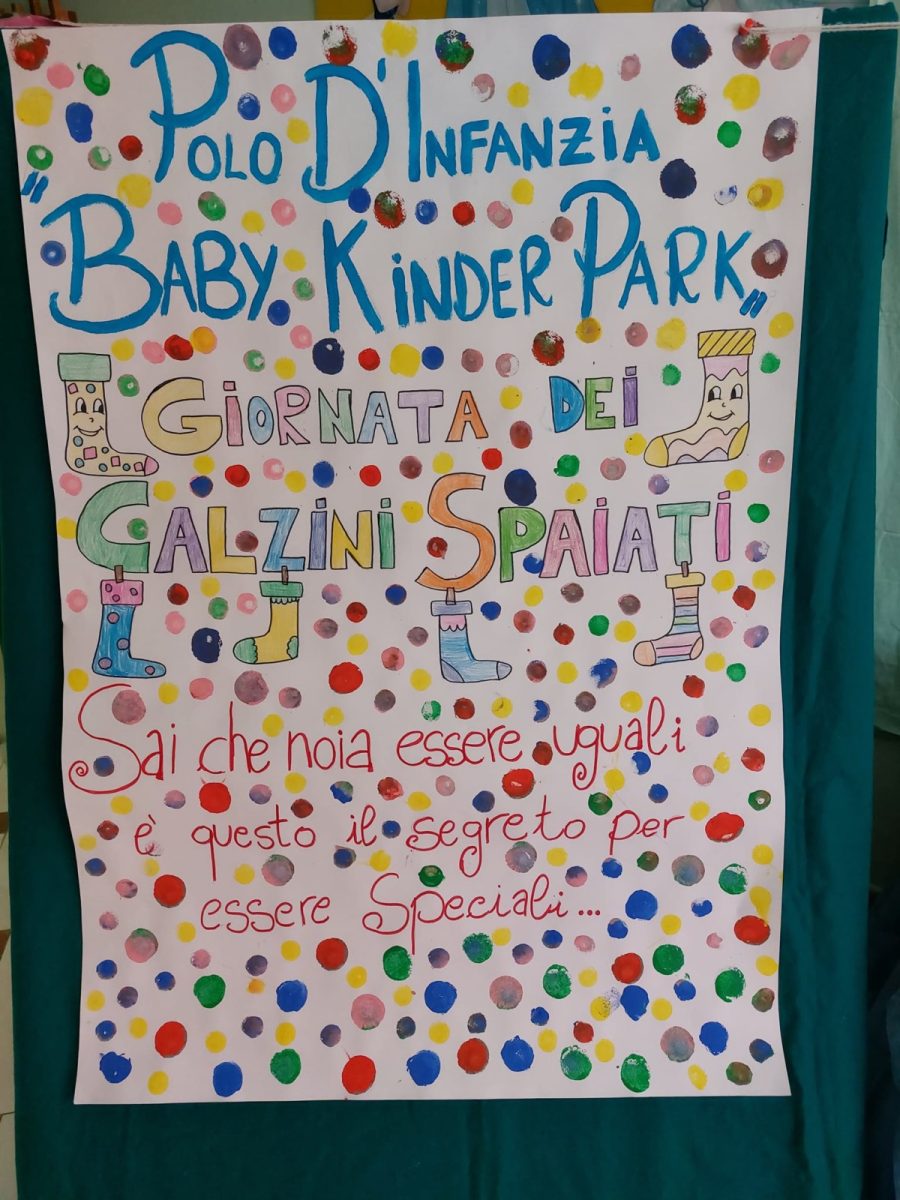 Polo D'Infanzia
"Baby Kinder Park"
Giornata dei
Calzini Spaiati
Sai che noia essere uguali
è questo il segreto per
essere Speciali...